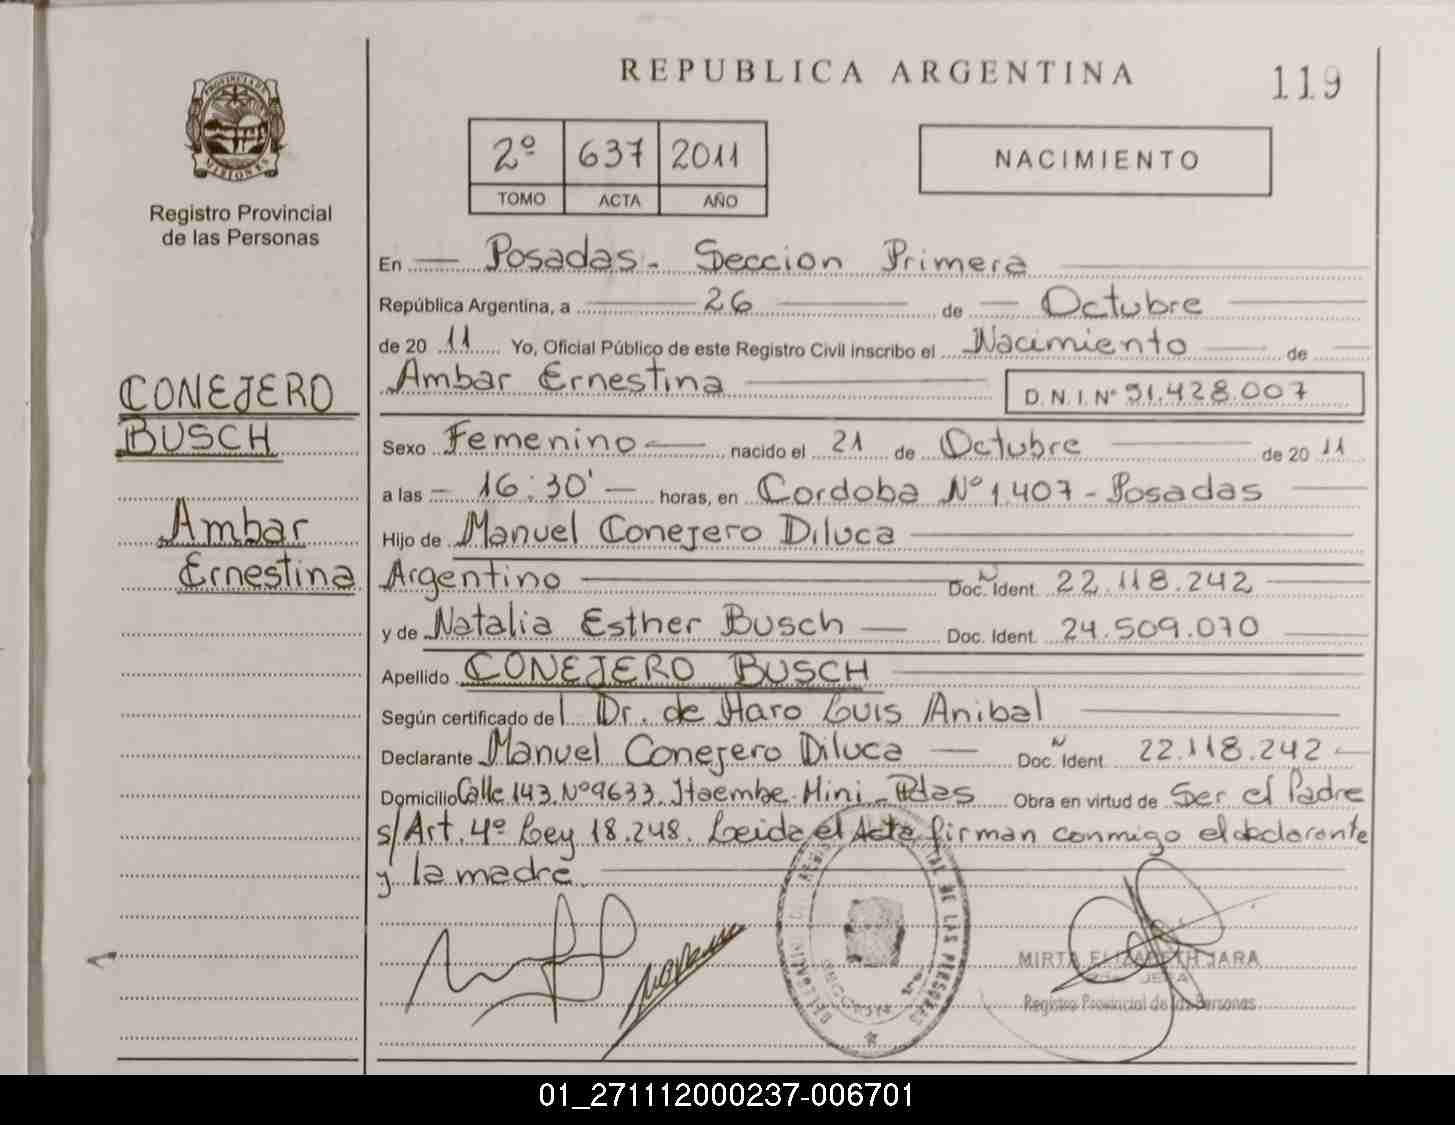 REPUBLICA ARGENTINA
119
PROVINCIA DE
MISIONES
Registro Provincial
de las Personas
2º 637 2011
TOMO ACTA AÑO
NACIMIENTO
En Posadas - Seccion Primera
República Argentina, a 26 de Octubre
de 20 11 Yo, Oficial Público de este Registro Civil inscribo el Nacimiento de
Ambar Ernestina D. N. I. Nº 51.428.007
CONEJERO
BUSCH
Ambar
Ernestina
Sexo Femenino nacido el 21 de Octubre de 20 11
a las 16:30' horas, en Cordoba Nº 1.407 - Posadas
Hijo de Manuel Conejero Diluca
Argentino Doc. Ident. 22.118.242
y de Natalia Esther Busch Doc. Ident. 24.509.070
Apellido CONEJERO BUSCH
Según certificado del Dr. de Haro Luis Anibal
Declarante Manuel Conejero Diluca Doc. Ident. 22.118.242
Domicilio Calle 143 Nº 9633 Itaembe Mini - Pdas Obra en virtud de Ser el Padre
s/Art. 4º Ley 18.248. Leida el Acta firman conmigo el declarante
y la madre
DE LAS PERSONAS
MIRTA ELIZABETH JARA
JEFA
Registro Provincial de las Personas
01_271112000237-006701